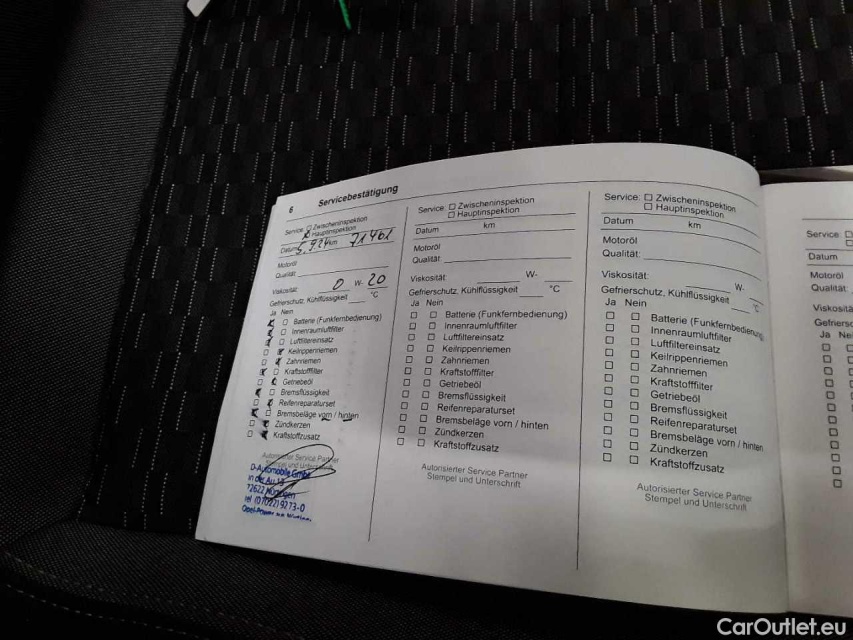 6 Servicebestätigung
Service: Zwischeninspektion
Hauptinspektion
Datum 5.9.24 km 71461
Motoröl
Qualität:
Viskosität: 0 W- 20
Gefrierschutz, Kühlflüssigkeit °C
Ja Nein
Batterie (Funkfernbedienung)
Innenraumluftfilter
Luftfiltereinsatz
Keilrippenriemen
Zahnriemen
Kraftstofffilter
Getriebeöl
Bremsflüssigkeit
Reifenreparaturset
Bremsbeläge vorn / hinten
Zündkerzen
Kraftstoffzusatz
Autorisierter Service Partner
Stempel und Unterschrift
D-Automobile GmbH
In der Au
72622 Nürtingen
Tel (07022) 9273-0
Service: Zwischeninspektion
Hauptinspektion
Datum km
Motoröl
Qualität:
Viskosität: W-
Gefrierschutz, Kühlflüssigkeit °C
Ja Nein
Batterie (Funkfernbedienung)
Innenraumluftfilter
Luftfiltereinsatz
Keilrippenriemen
Zahnriemen
Kraftstofffilter
Getriebeöl
Bremsflüssigkeit
Reifenreparaturset
Bremsbeläge vorn / hinten
Zündkerzen
Kraftstoffzusatz
Autorisierter Service Partner
Stempel und Unterschrift
Service: Zwischeninspektion
Hauptinspektion
Datum km
Motoröl
Qualität:
Viskosität: W-
Gefrierschutz, Kühlflüssigkeit °C
Ja Nein
Batterie (Funkfernbedienung)
Innenraumluftfilter
Luftfiltereinsatz
Keilrippenriemen
Zahnriemen
Kraftstofffilter
Getriebeöl
Bremsflüssigkeit
Reifenreparaturset
Bremsbeläge vorn / hinten
Zündkerzen
Kraftstoffzusatz
Autorisierter Service Partner
Stempel und Unterschrift
Service:
Datum
Motoröl
Qualität:
Viskositä
Gefriersc
Ja Ne
CarOutlet.eu